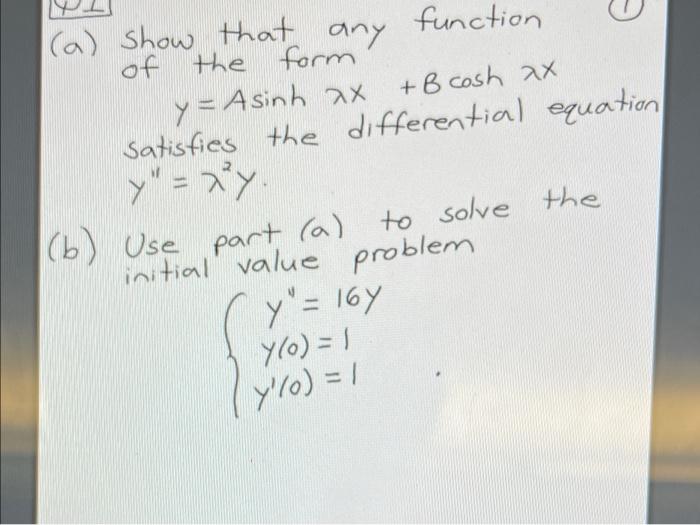 (a) Show that any function
of the form
y = A sinh λx + B cosh λx
satisfies the differential equation
y" = λ²y.
(b) Use part (a) to solve the
initial value problem
y" = 16y
y(0) = 1
y'(0) = 1